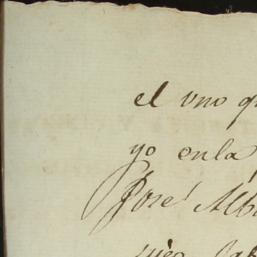 el uno q
yo enla
José Alb